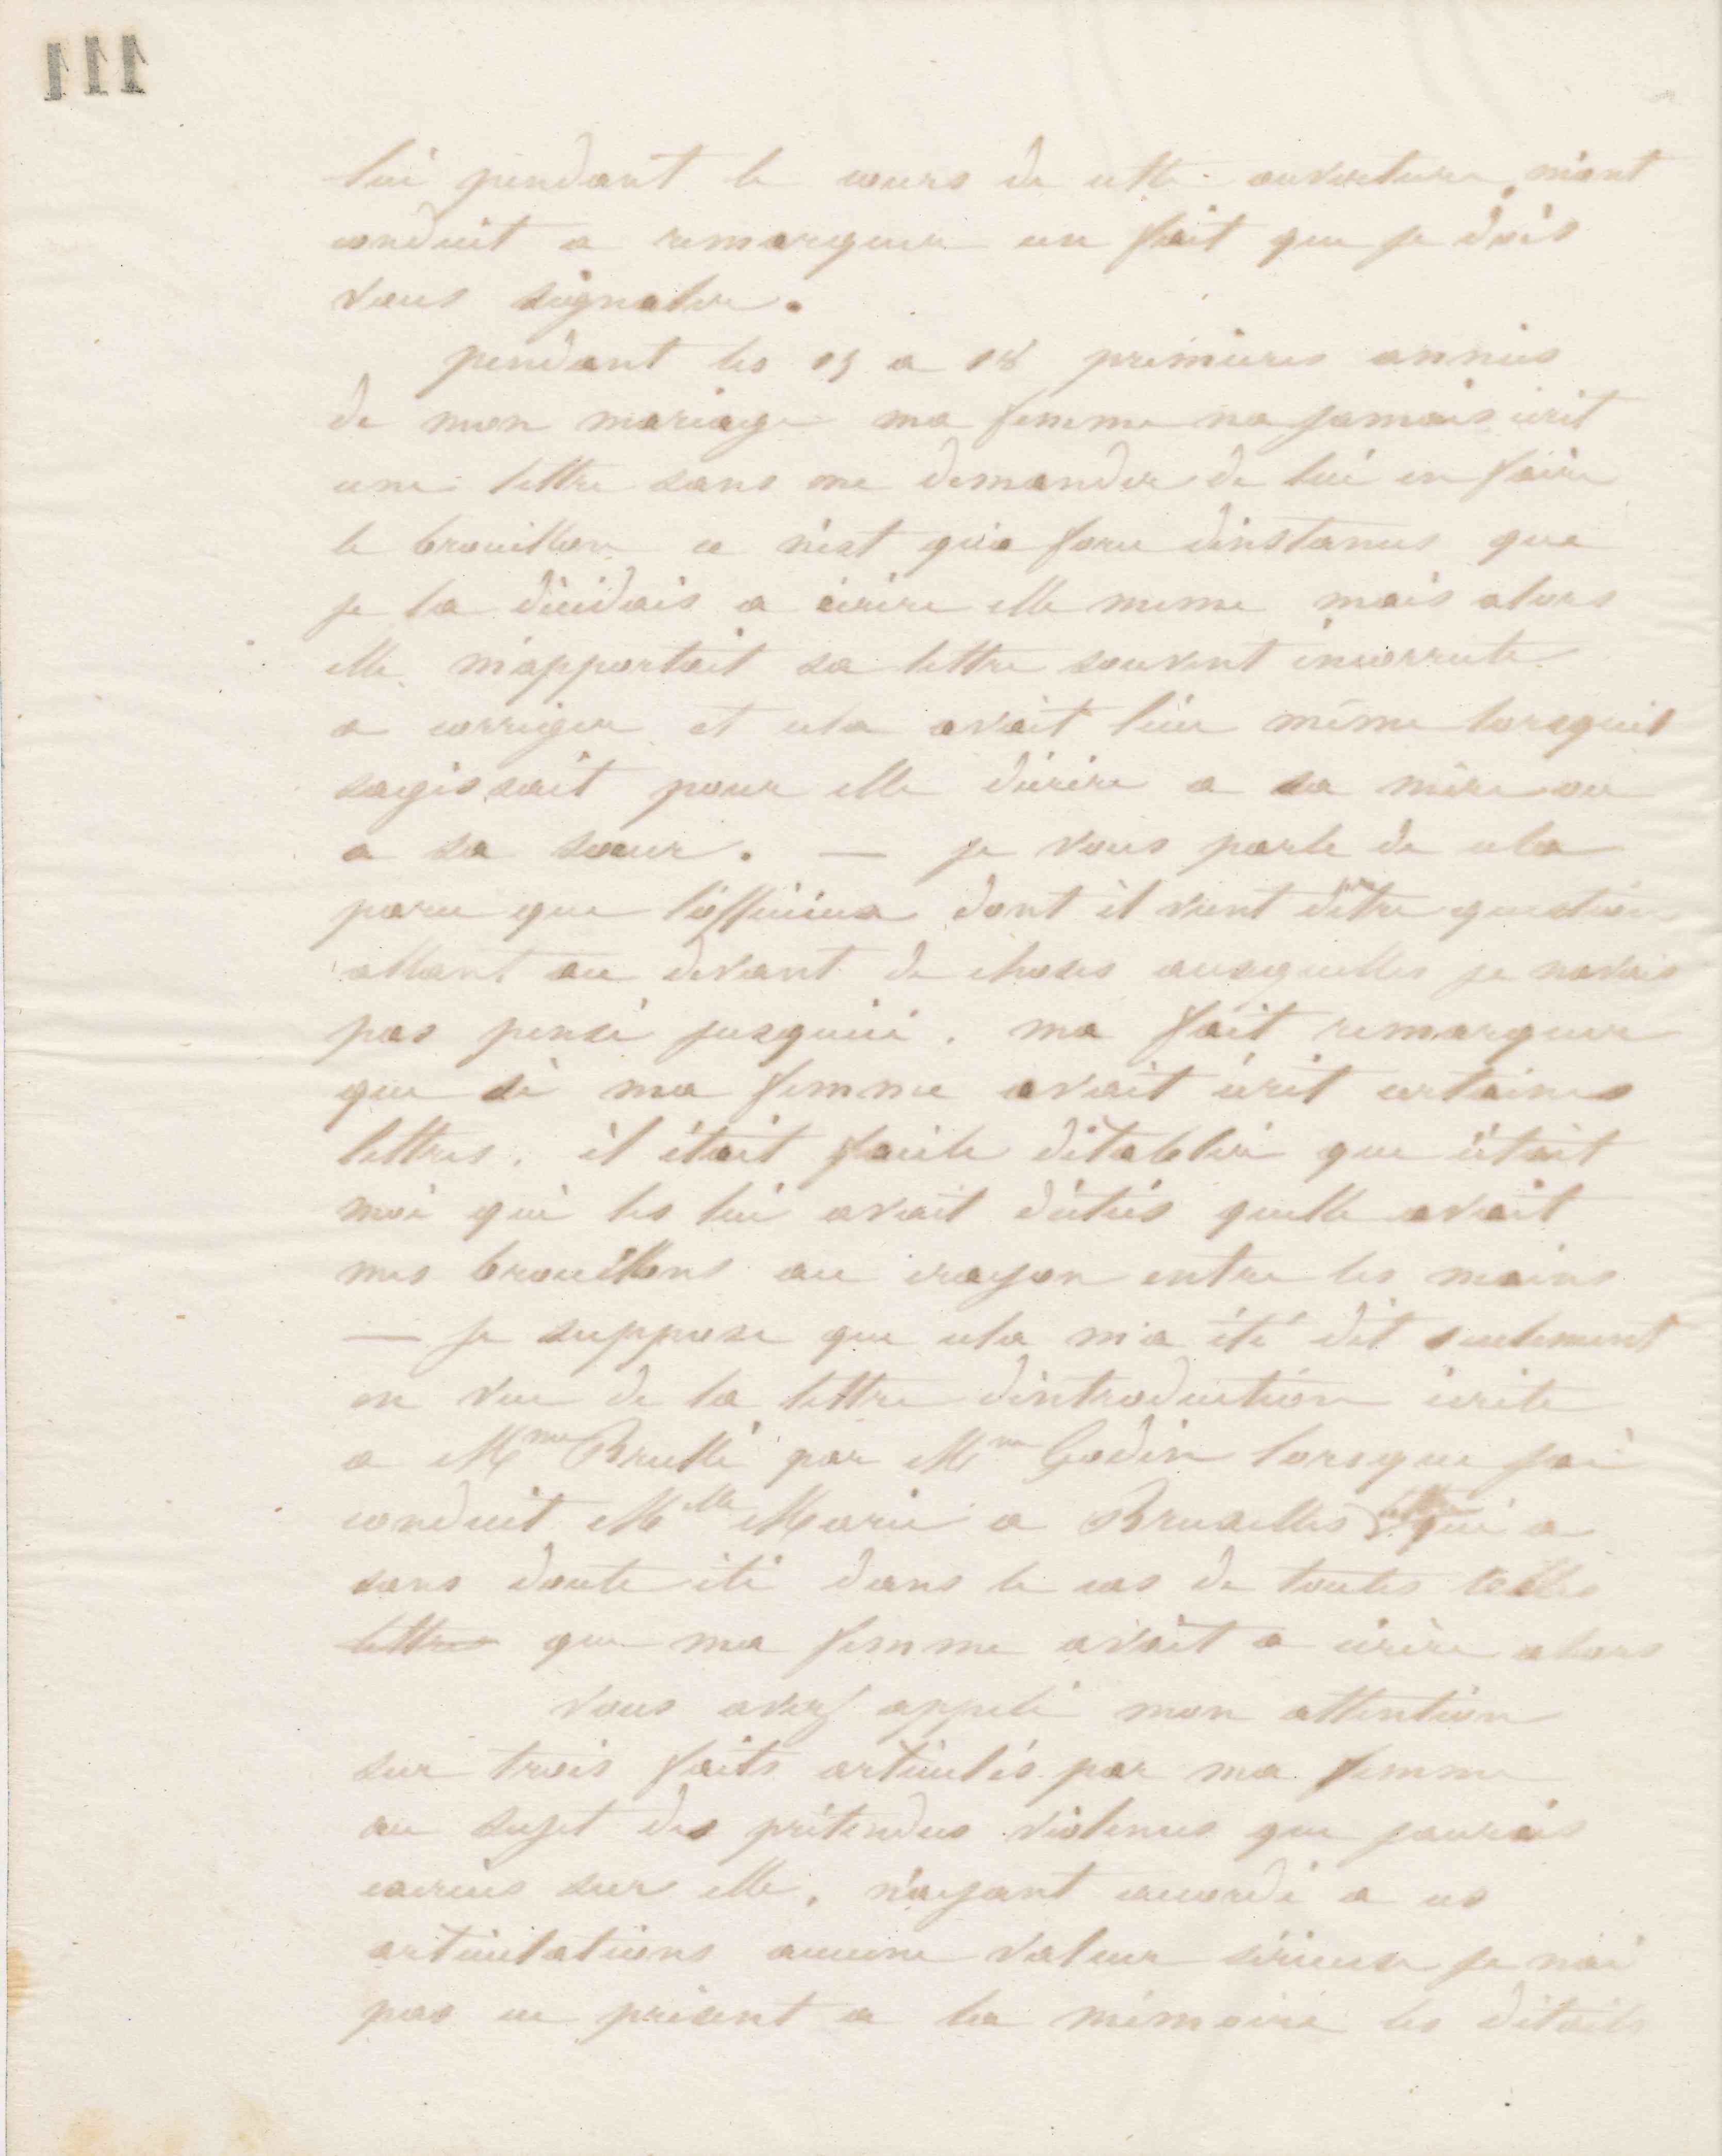 111
lui pendant le cours de cette ouverture m'ont
conduit a remarquer un fait que je dois
vous signaler.
pendant les 15 a 18 premieres années
de mon mariage ma femme na jamais écrit
une lettre sans me demander de lui en faire
le brouillon ce n'est qu'a force dinstances que
je la décidais a écrire elle meme mais alors
elle m'apportait sa lettre souvent incorrecte
a corriger et cela avait lieu même lorsquil
sagissait pour elle décrire a sa mère ou
a sa sœur. — je vous parle de cela
parce que l'officieux dont il vient d'être question
allant au devant de choses auxquelles je navais
pas pensé jusquici. ma fait remarquer
que si ma femme avait écrit certaines
lettres. il était facile détablir que c'était
moi qui les lui avait dictées quelle avait
mes brouillons au crayon entre les mains
— je suppose que cela m'a été dit seulement
en vue de la lettre dintroduction écrite
a Mme Brullé par Mme Godin lorsque jai
conduit Melle Marie a Bruxelles lettre qui a
sans doute été dans le cas de toutes celles
lettres que ma femme avait a écrire alors
vous avez appelé mon attention
sur trois faits articulés par ma femme
au sujet des prétendues violences que jaurais
exercées sur elle. n'ayant accordé a ces
articulations aucune valeur sérieuse je nai
pas en présent a la mémoire les détails